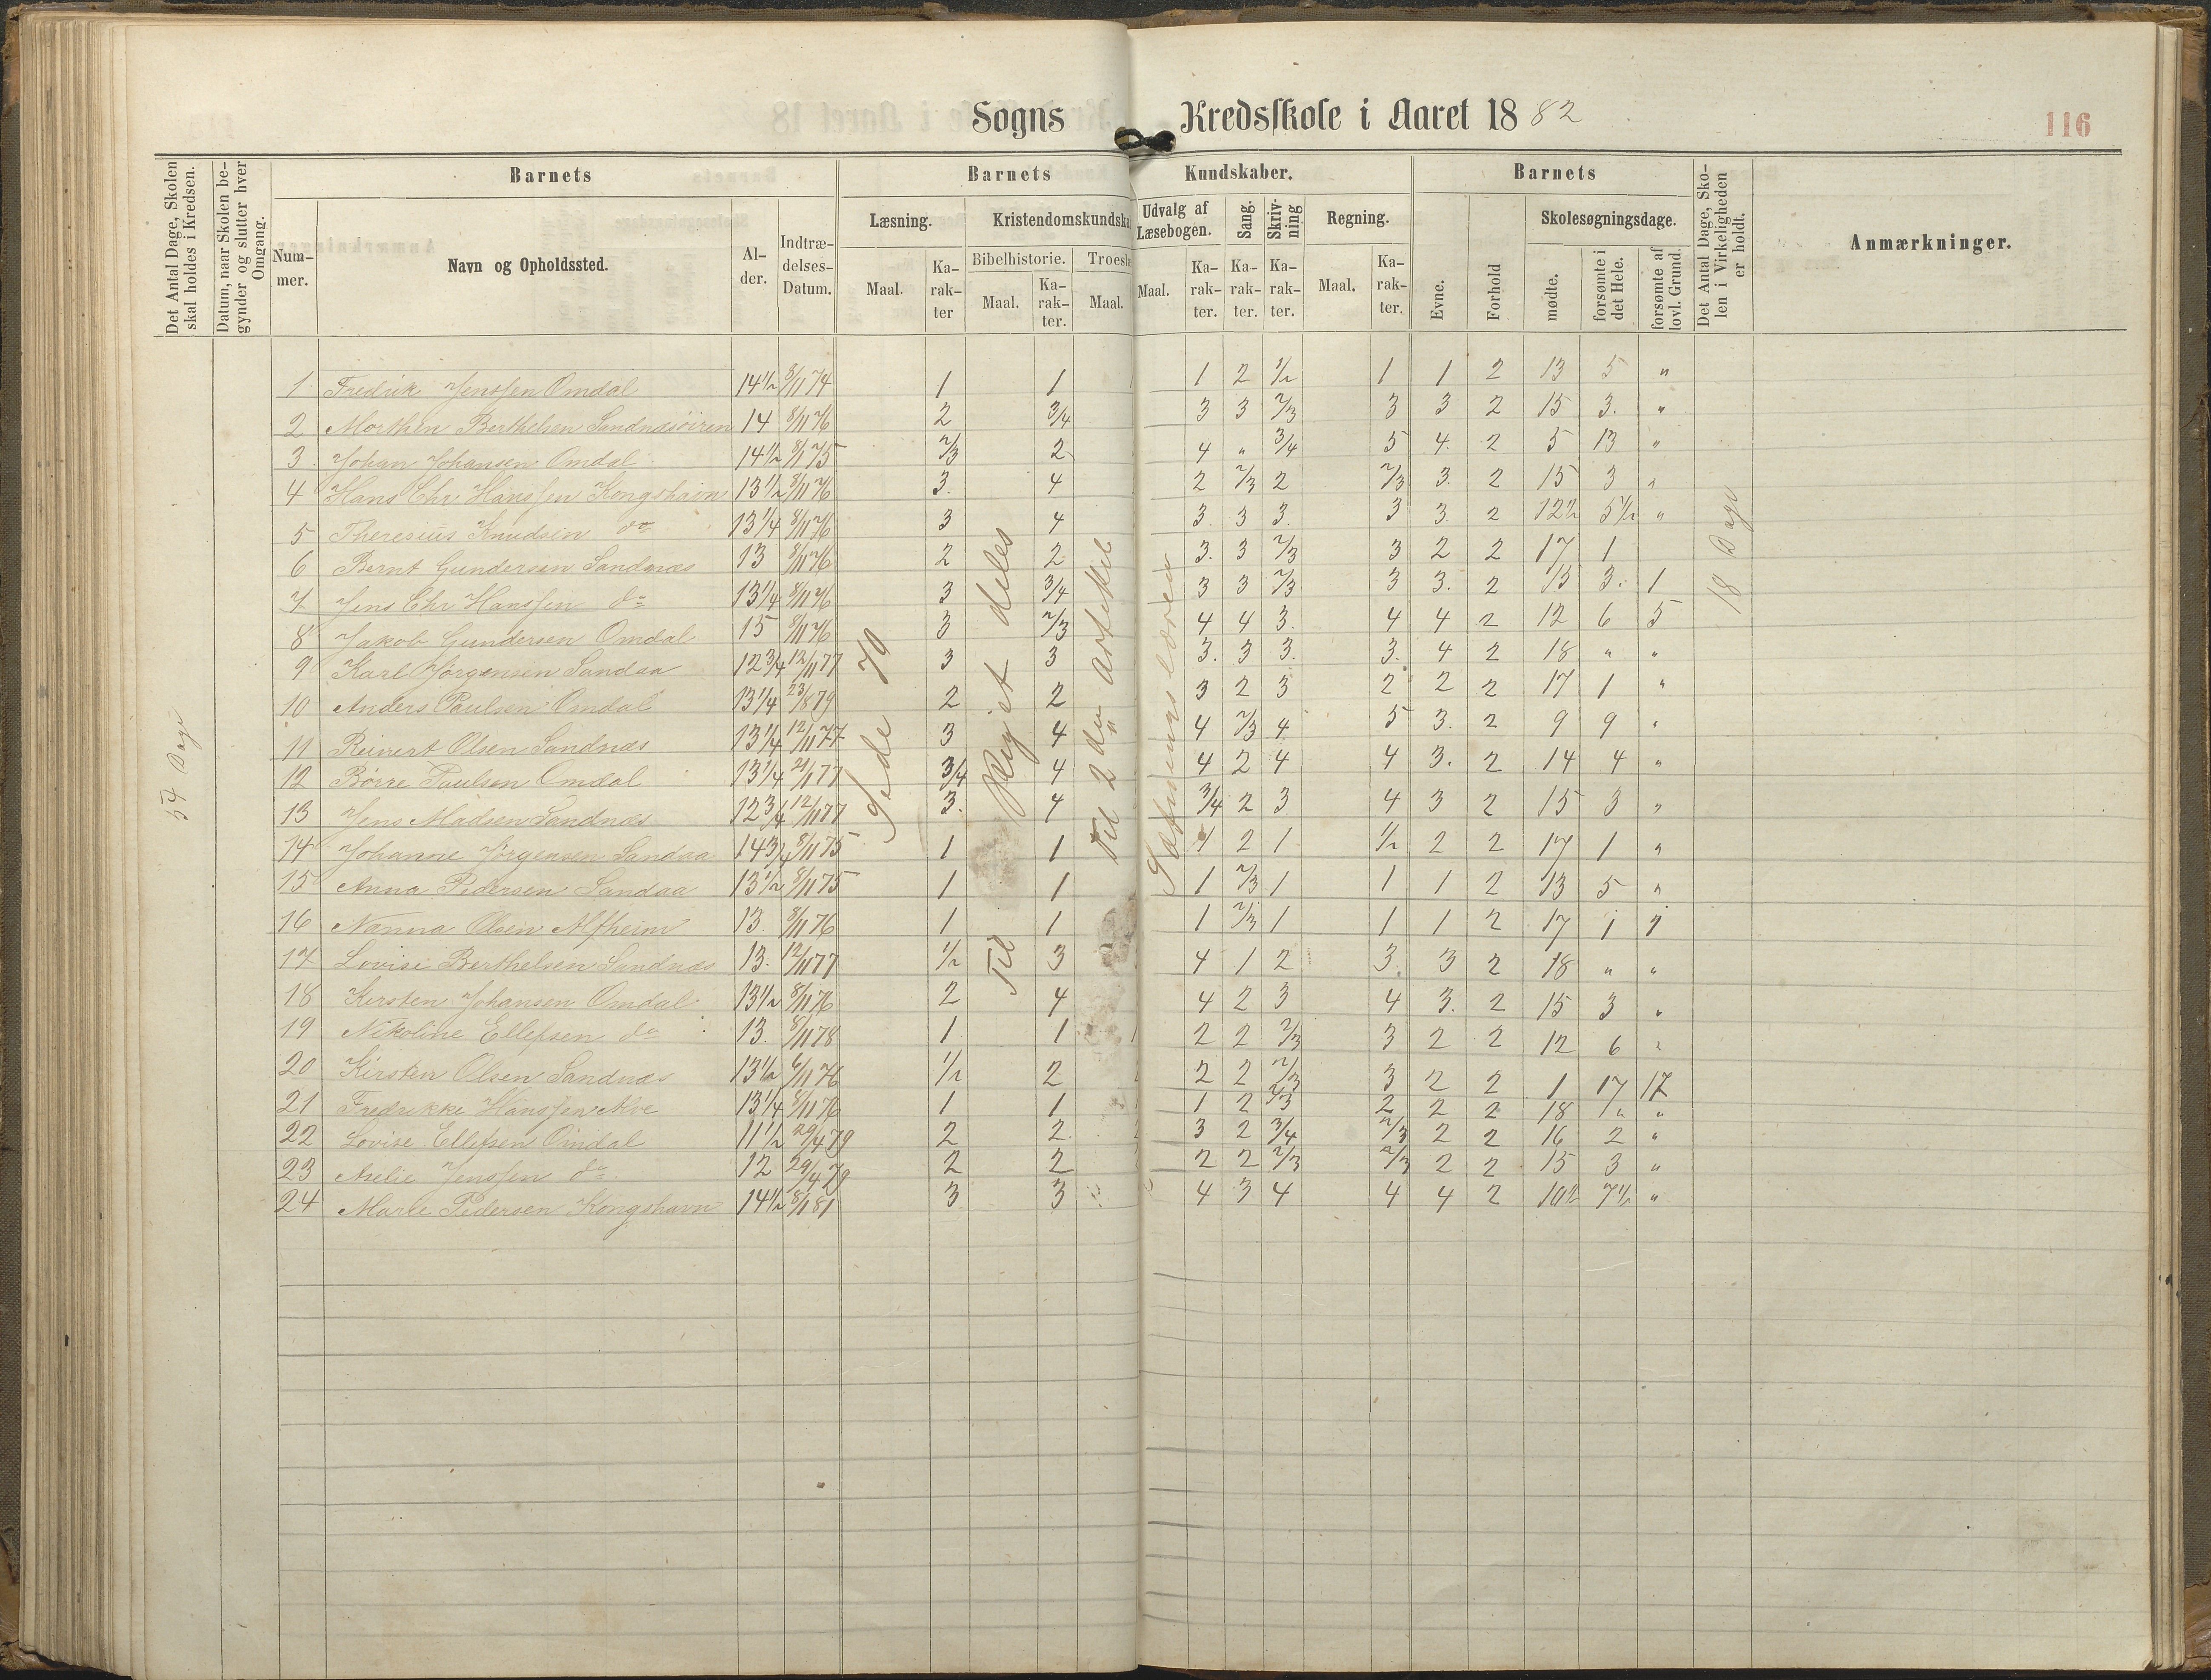 Sogns Kredsskole i Aaret 1882
116
Det Antal Dage, Skolen skal holdes i Kredsen.
Datum, naar Skolen begynder og slutter hver Omgang.
Barnets
Barnets Kundskaber.
Barnets
Det Antal Dage, Skolen i Virkeligheden er holdt.
Anmærkninger.
Nummer.
Navn og Opholdssted.
Alder.
Indtrædelses-Datum.
Læsning.
Kristendomskundska
Udvalg af Læsebogen.
Sang.
Skrivning
Regning.
Evne.
Forhold
Skolesøgningsdage.
Bibelhistorie.
Troesl
Maal.
Karakter
Maal.
Karakter.
Maal.
Maal.
Karakter.
Karakter.
Karakter.
Maal.
Karakter.
mødte.
forsømte i det Hele.
forsømte af lovl. Grund.
54 Dage
18 Dage
Side 70
Til Riget deles
Til 2den Artikel
1 Fredrik Jenssen Omdal 14½ 8/11 74 1 1 1 2 ½ 1 1 2 13 5 "
2 Morthen Berthelsen Sandnæsøiren 14 8/11 76 2 3/4 3 3 2/3 3 3 2 15 3. "
3 Johan Johansen Omdal 14½ 8/11 75 2/3 2 4 " 3/4 5 4. 2 5 13 "
4 Hans Chr Hanssen Kongshavn 13½ 8/11 76 3. 4 2 2/3 2 2/3 3. 2 15 3 "
5 Theresius Knudsen do 13¼ 8/11 76 3 4 3. 3 3. 3 3. 2 12½ 5½ "
6 Bernt Gundersen Sandnæs 13 8/11 76 2 2 3. 3 2/3 3 2 2 17 1
7 Jens Chr Hanssen do 13¼ 8/11 76 3 3/4 3 3 2/3 3 3. 2 15 3. 1
8 Jakob Gundersen Omdal 15 8/11 76 3 2/3 4 4 3. 4 4 2 12 6 5
9 Karl Jørgensen Sandaa 12¾ 12/11 77 3 3 3. 3 3. 3. 4 2 18 " "
10 Anders Paulsen Omdal 13¼ 23/8 79 2 2 3 2 3 2 2 2 17 1 "
11 Reinert Olsen Sandnæs 13¼ 12/11 77 3 4 4 2/3 4 5 3. 2 9 9 "
12 Børre Paulsen Omdal 13¼ 21/1 77 3/4 4 4 2 4 4 3. 2 14 4 "
13 Jens Madsen Sandnæs 12¾ 12/11 77 3. 4 3/4 2 3 4 3 2 15 3 "
14 Johanne Jørgensen Sandaa 14¾ 8/11 75 1 1 1 2 1 ½ 2 2 17 1 "
15 Anna Pedersen Sandaa 13½ 8/11 75 1 1 1 2/3 1 1 1 2 13 5 "
16 Nanna Olsen Alfheim 13. 8/11 76 1 1 1 2/3 1 1 1 2 17 1 1
17 Lovise Berthelsen Sandnæs 13. 12/11 77 ½ 3 4 1 2 3. 3 2 18 " "
18 Kirsten Johansen Omdal 13½ 8/11 76 2 4 4 2 3 4 3. 2 15 3 "
19 Nikoline Ellefsen do 13. 8/11 78 1 1 2 2 2/3 3 2 2 12 6 "
20 Kirsten Olsen Sandnæs 13½ 6/11 76 ½ 2 2 2 2/3 3 2 2 1 17 17
21 Fredrikke Hanssen Alve 13¼ 8/11 76 1 1 1 2 2/3 2 2 2 18 " "
22 Lovise Ellefsen Omdal 11½ 29/4 79 2 2. 3 2 3/4 2/3 2 2 16 2 "
23 Aselie Jenssen do 12 29/4 79 2 2 2 2 2/3 2/3 2 2 15 3 "
24 Marie Pedersen Kongshavn 14½ 8/1 81 3 3 4 3 4 4 4 2 10½ 7½ "